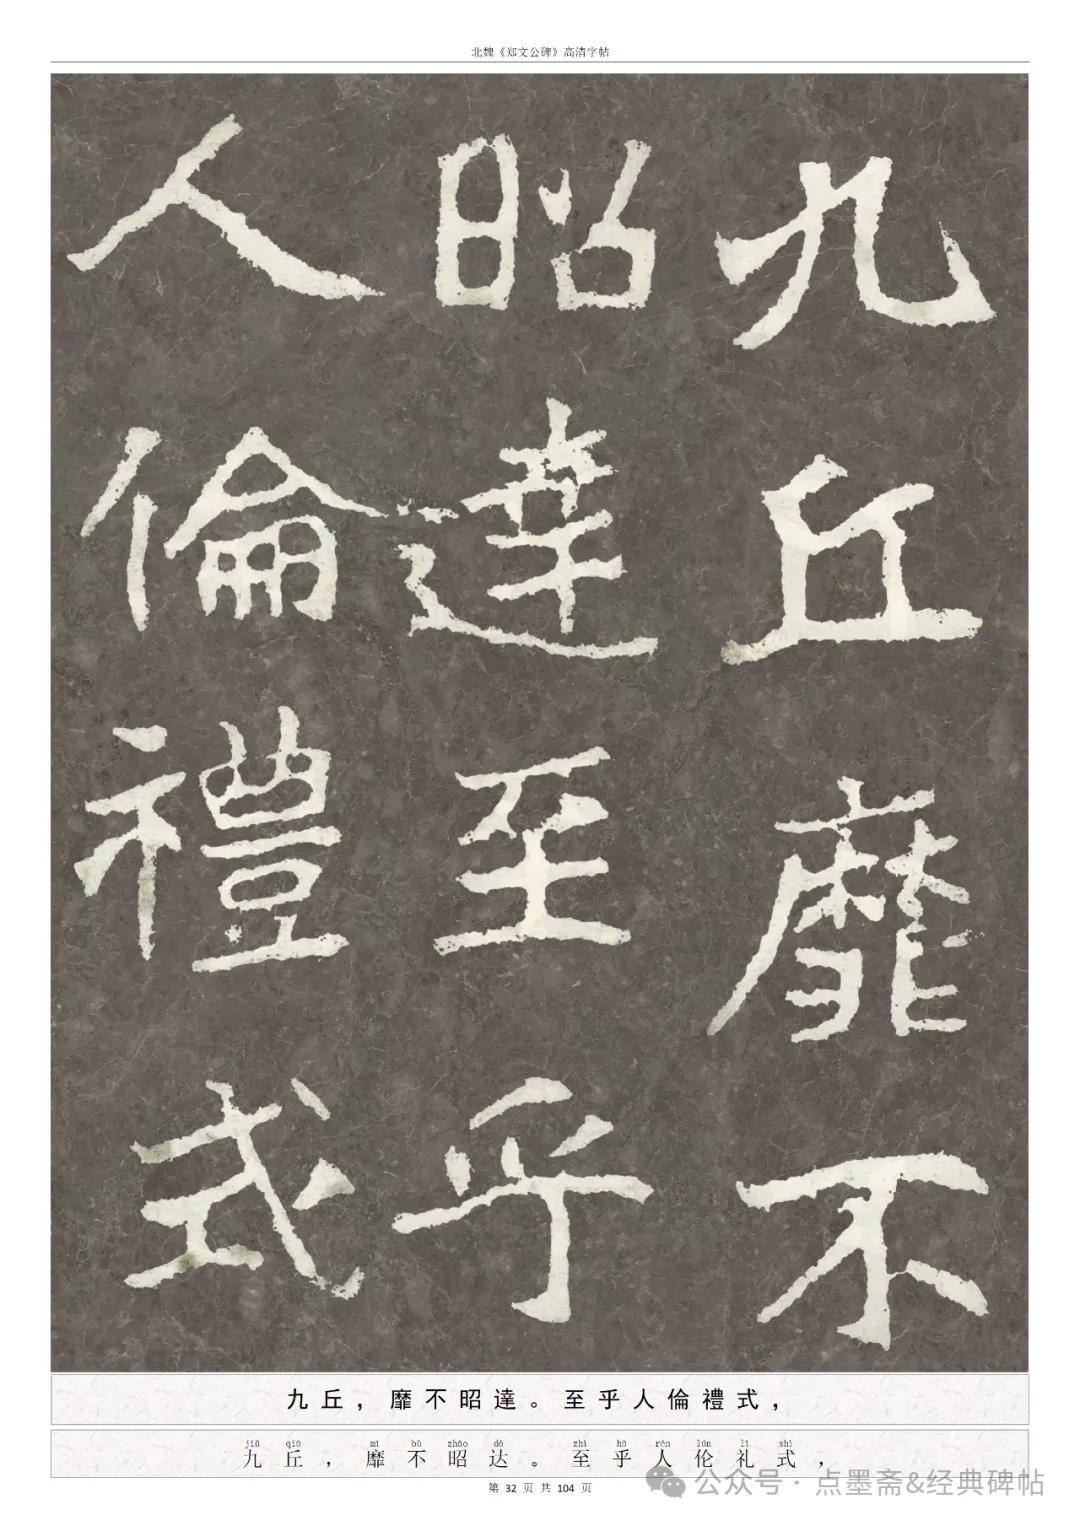 北魏《郑文公碑》高清字帖
九丘靡不
昭達至乎
人倫禮式
九丘，靡不昭達。至乎人倫禮式，
jiǔ qiū mǐ bù zhāo dá zhì hū rén lún lǐ shì
九丘，靡不昭达。至乎人伦礼式，
第 32 页 共 104 页
公众号 · 点墨斋&经典碑帖